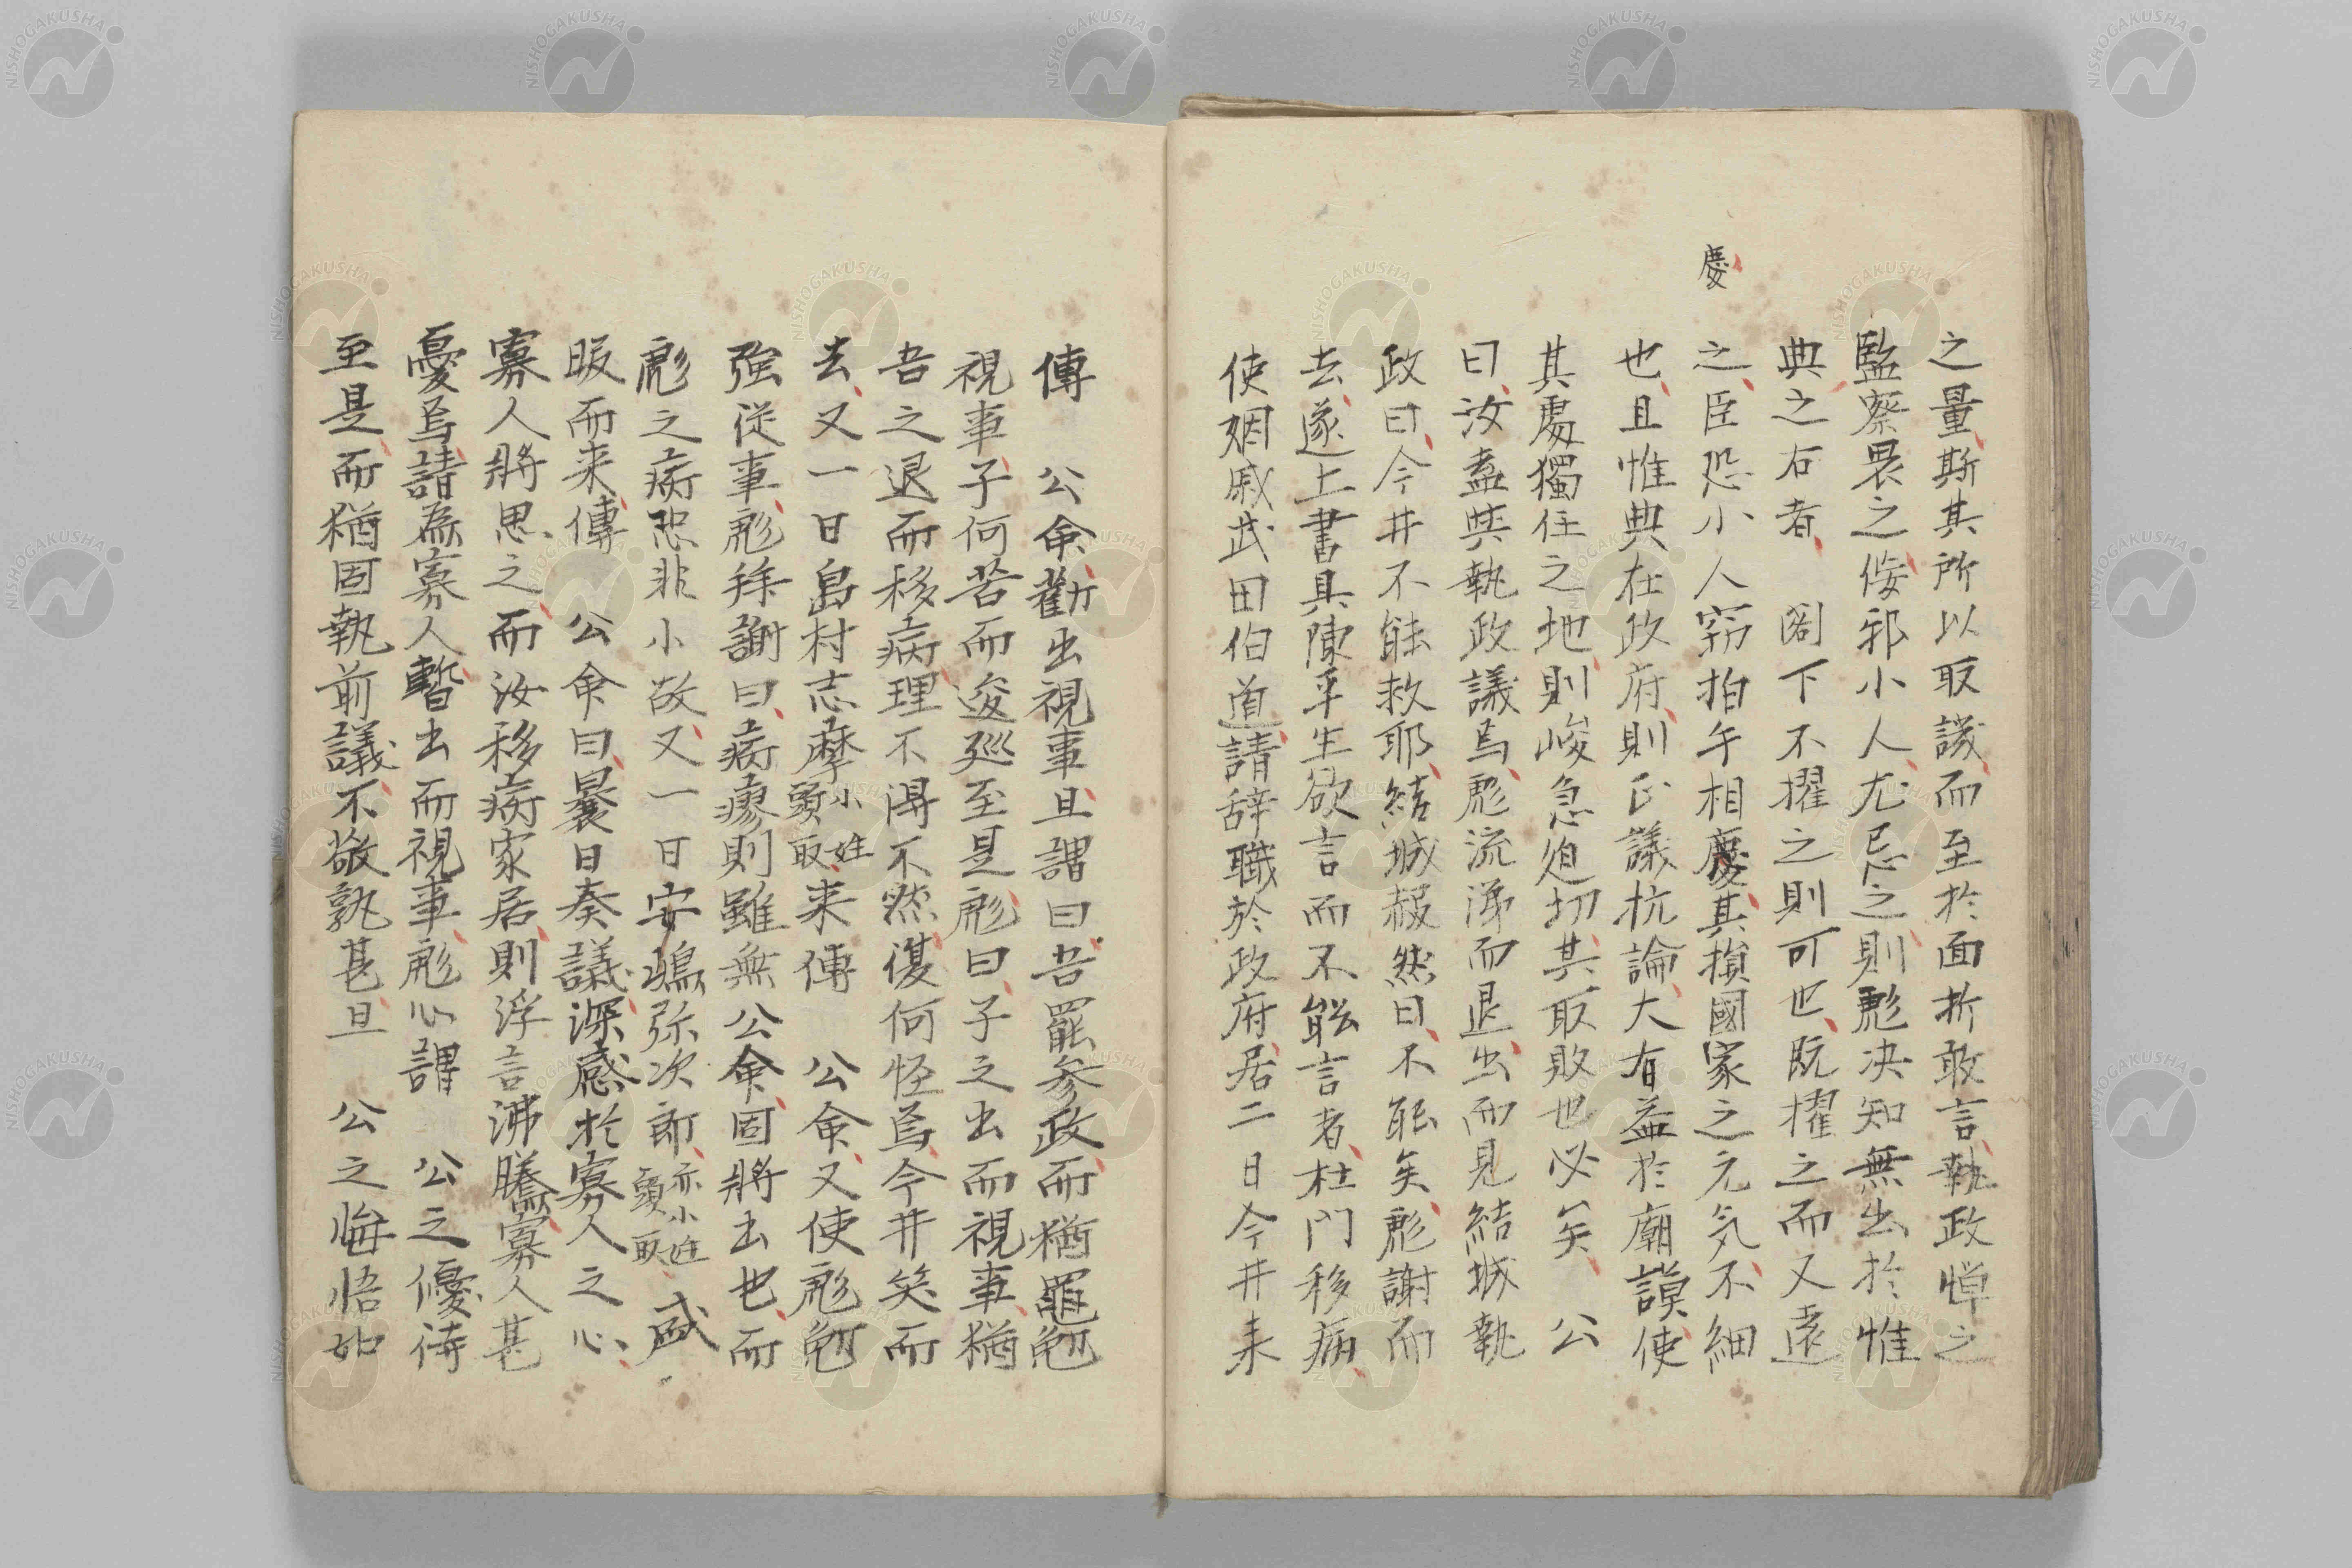 慶
之量斯其所以取謗而至於面折敢言執政憚之
監察畏之佞邪小人尤忌之則彪决知無出於惟
典之右者 閣下不擢之則可也既擢之而又遠
之臣恐小人窃拍午相慶其損國家之元気不細
也且惟典在政府則正議抗論大有益於廟謨使
其處獨任之地則峻急迫切其取敗也必矣 公
曰汝盍與執政議焉彪流涕而退出而見結城執
政曰今井不能救耶結城赧然曰不能矣彪謝而
去遂上書具陳平生欲言而不能言者杜門移病
使姻戚武田伯道請辞職於政府居二日今井来
傳 公命勸出視事且謂曰吾罷参政而猶黽勉
視事子何苦而逡巡至是彪曰子之出而視事猶
吾之退而移病理不得不然復何怪焉今井笑而
去又一日島村志摩小姓頭取来傳 公命又使彪勉
強従事彪拜謝曰病瘳則雖無公命固將出也而
彪之病恐非小故又一日安嶋弥次郎亦小姓頭取盛
服而来傳 公命曰曩日奏議深感於寡人之心
寡人將思之而汝移病家居則浮言沸騰寡人甚
憂焉請為寡人暫出而視事彪心謂 公之優待
至是而猶固執前議不敬孰甚且 公之悔悟如